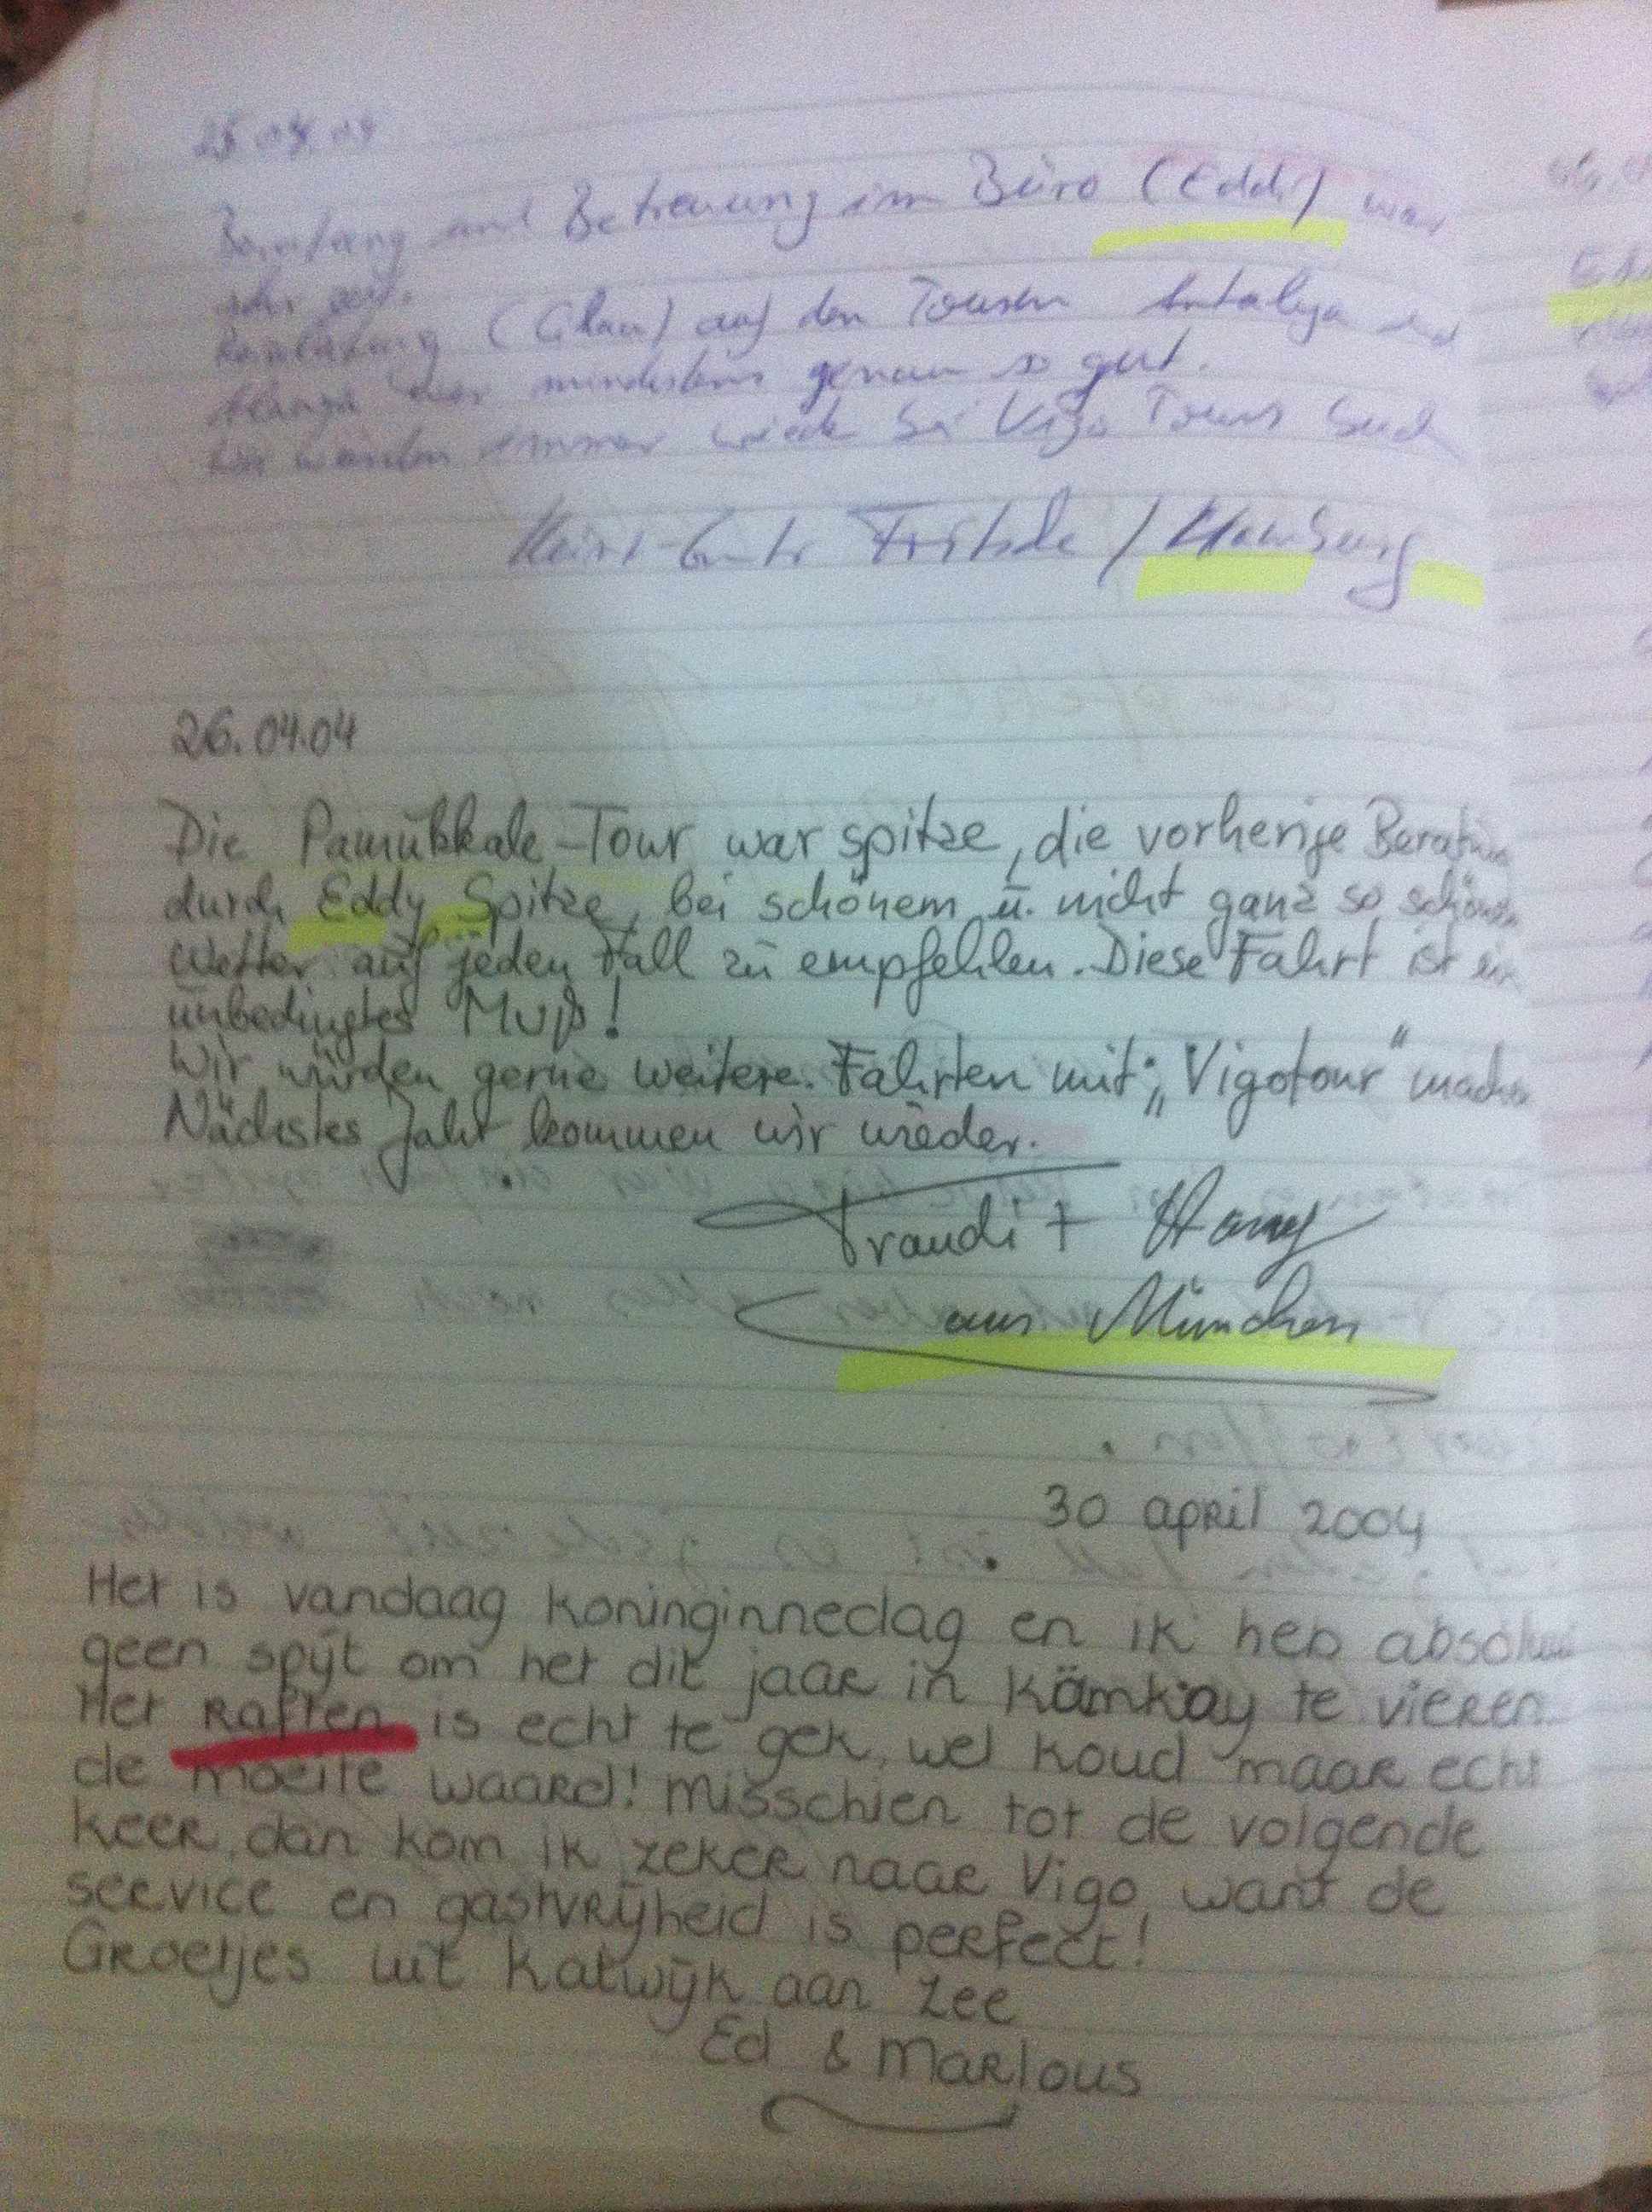 25.04.04
Beratung und Betreuung im Büro (Eddi) war
sehr gut.
(Cilan) auf den Touren Antalya und
Alanya war mindestens genau so gut.
Wir werden immer wieder bei Vigo Tours
Fritsche / Hamburg
26.04.04
Die Pamukkale-Tour war spitze, die vorherige Beratung
durch Eddy Spitze, bei schönem u. nicht ganz so schönem
Wetter auf jeden Fall zu empfehlen. Diese Fahrt ist ein
unbedingtes Muß!
Wir würden gerne weitere Fahrten mit „Vigotour" machen
Nächstes Jahr kommen wir wieder.
Traudi +
aus München
30 april 2004
Het is vandaag koninginnedag en ik heb absoluut
geen spijt om het dit jaar in Kämkay te vieren.
Het Raften is echt te gek, wel koud maar echt
de moeite waard! Misschien tot de volgende
keer, dan kom ik zeker naar Vigo, want de
service en gastvrijheid is perfect!
Groetjes uit Katwijk aan Zee
Ed & Marlous